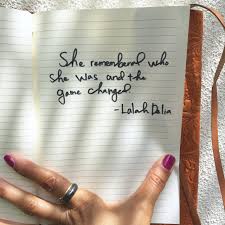 She remembered who
she was and the
game changed
-Lalah Delia